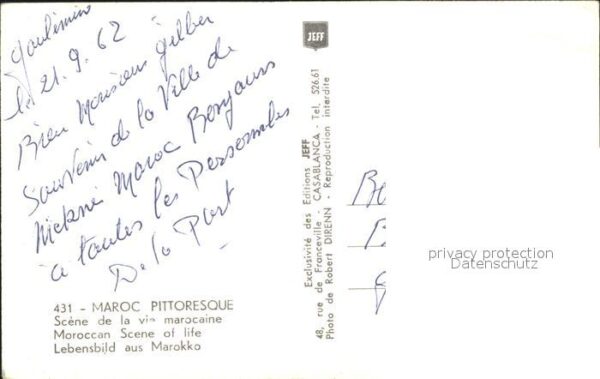 Goulimine
le 21.9.62
Bien Monsieur Gilber
Souvenir de la Ville de
Meknè Maroc Bonjours
a toutes les Personnales
De la Part
431 - MAROC PITTORESQUE
Scène de la vie marocaine
Moroccan Scene of life
Lebensbild aus Marokko
JEFF
Exclusivité des Editions JEFF
48, rue de Franceville - CASABLANCA - Tel. 526.61
Photo de Robert DIRENN - Reproduction interdite
privacy protection
Datenschutz